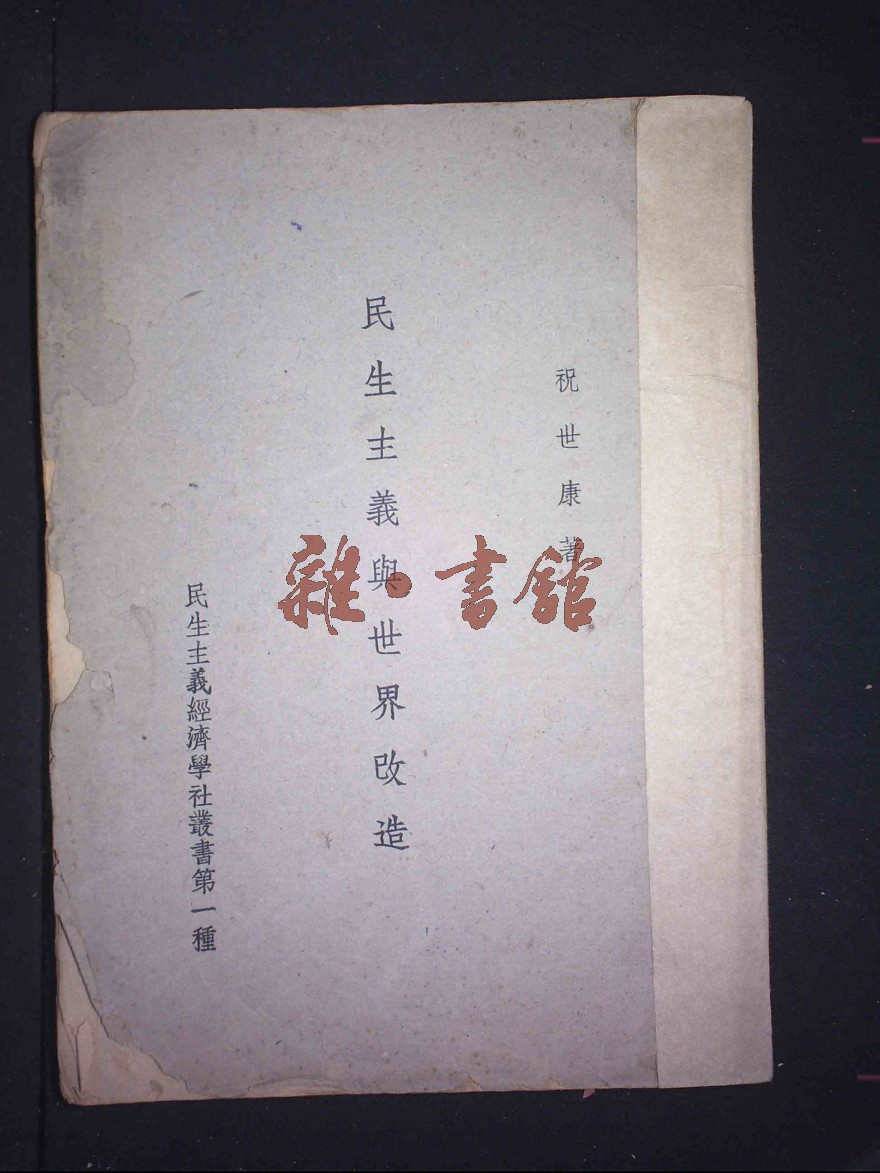 祝世康著
民生主義與世界改造
民生主義經濟學社叢書第一種
雜·書館